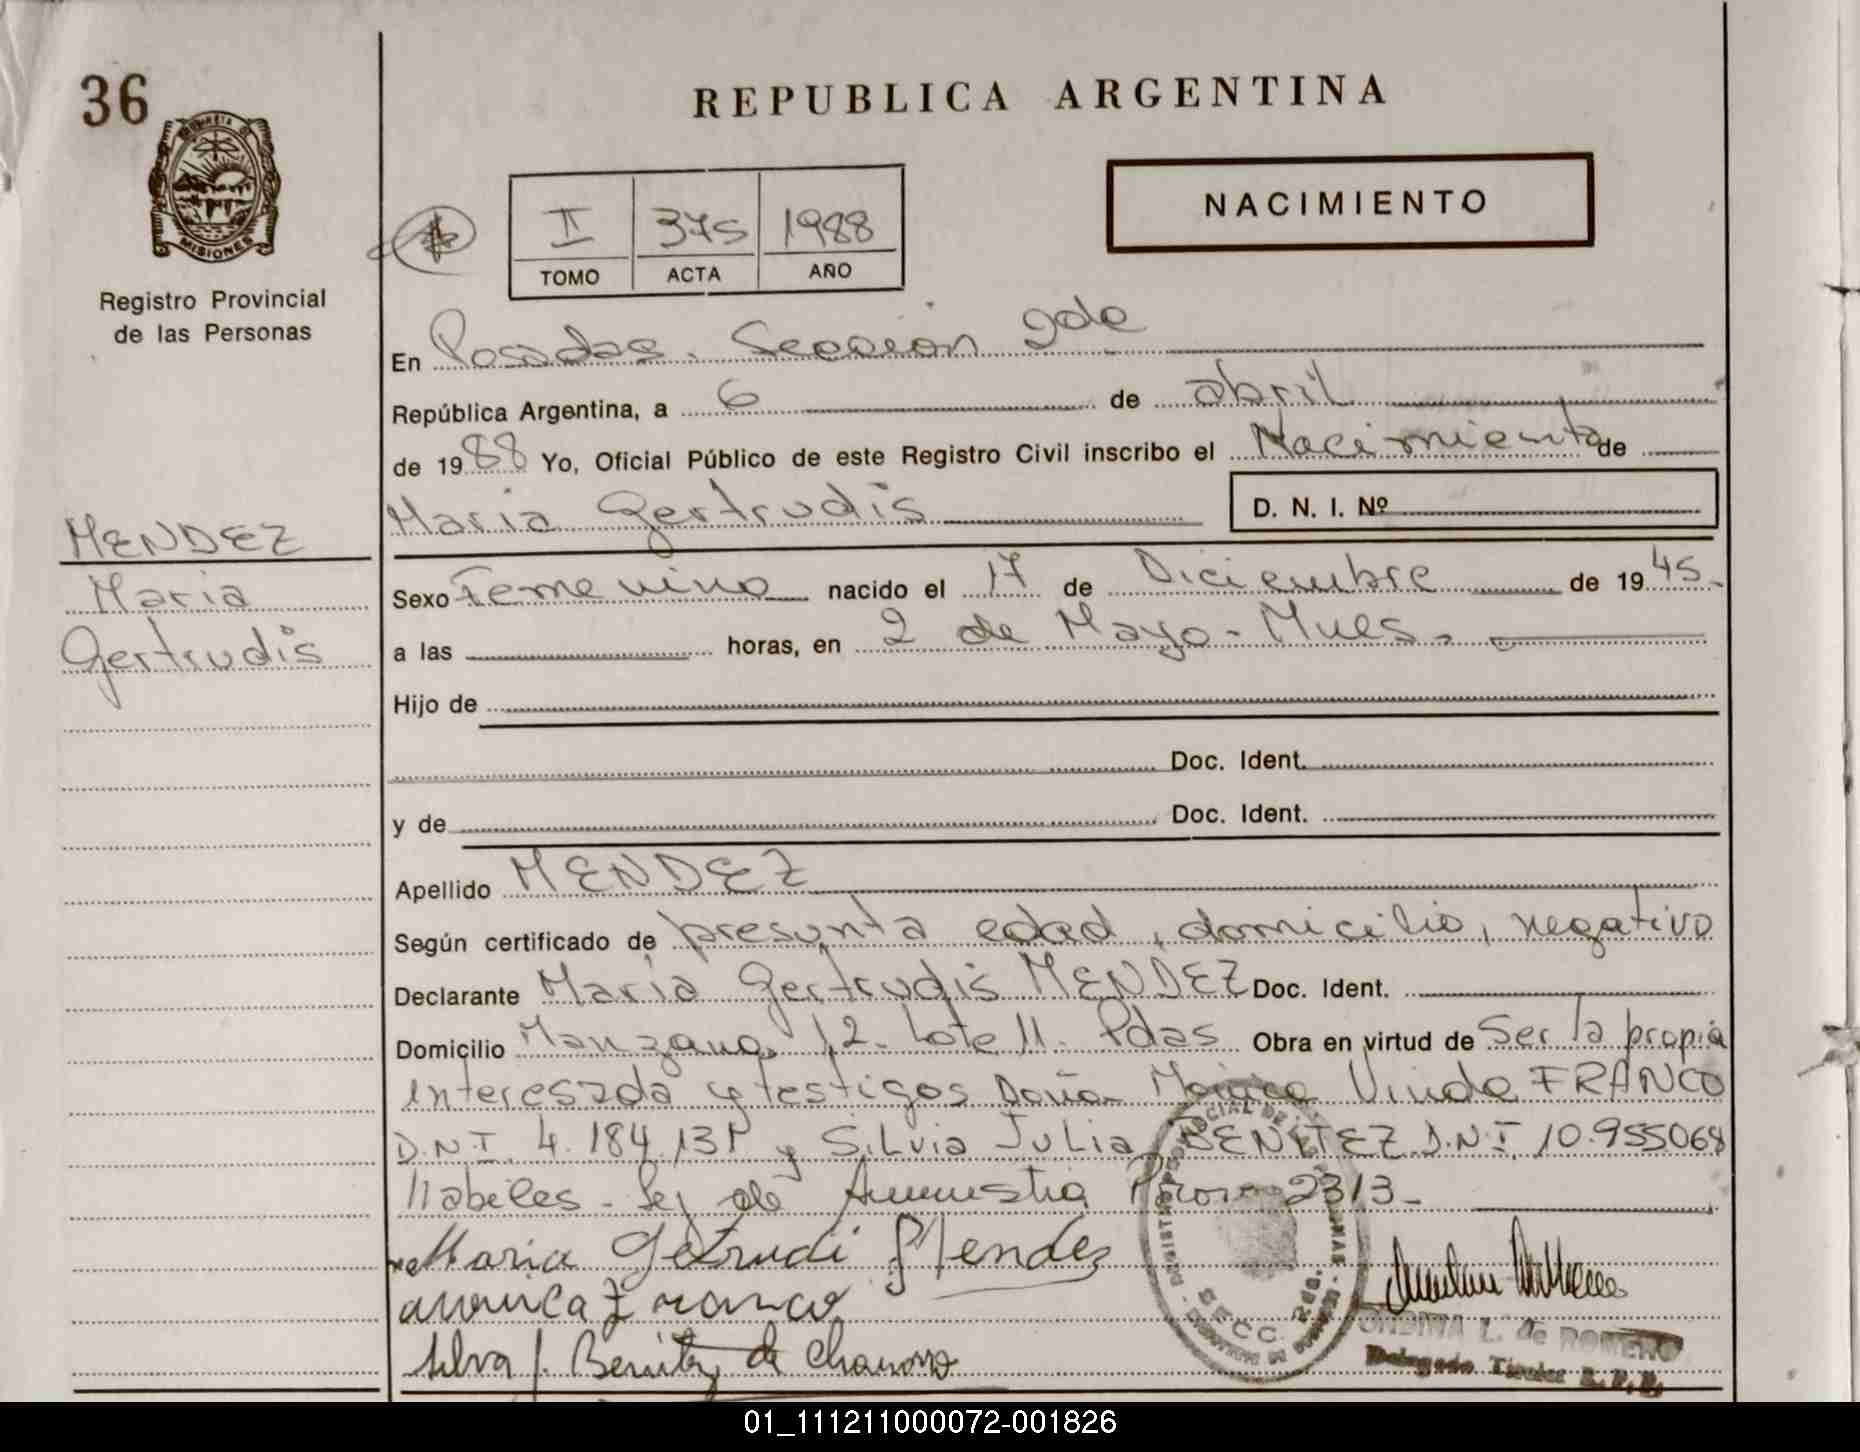 36
REPUBLICA ARGENTINA
MISIONES
Registro Provincial
de las Personas
II 375 1988
TOMO ACTA AÑO
NACIMIENTO
En Posadas. Sección 2da
República Argentina, a 6 de abril
de 1988 Yo, Oficial Público de este Registro Civil inscribo el Nacimiento de
Maria Gertrudis D. N. I. Nº
MENDEZ
Maria
Gertrudis
Sexo Femenino nacido el 17 de Diciembre de 1945
a las horas, en 2 de Mayo - Mnes.
Hijo de
Doc. Ident.
y de Doc. Ident.
Apellido MENDEZ
Según certificado de presunta edad, domicilio, negativo
Declarante Maria Gertrudis MENDEZ Doc. Ident.
Domicilio Manzana 12. Lote 11. Pdas Obra en virtud de Ser la propia
interesada y testigos Doña Monica Viuda FRANCO
D.N.I. 4.184.131 y Silvia Julia BENITEZ D.N.I. 10.955068
Habiles - Ley de Amnistia Prov. 2313 -
Maria Getrudi Mendez
Monica Franco
Silva J. Benitez de
ONDINA L. de ROMERO
Delegado Titular R.P.P.
01_111211000072-001826